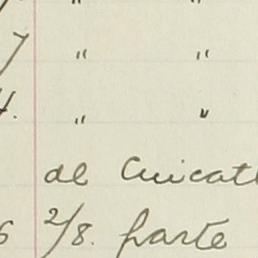 " "
7 " "
4. " "
de Cuicatl
6 2/8. parte